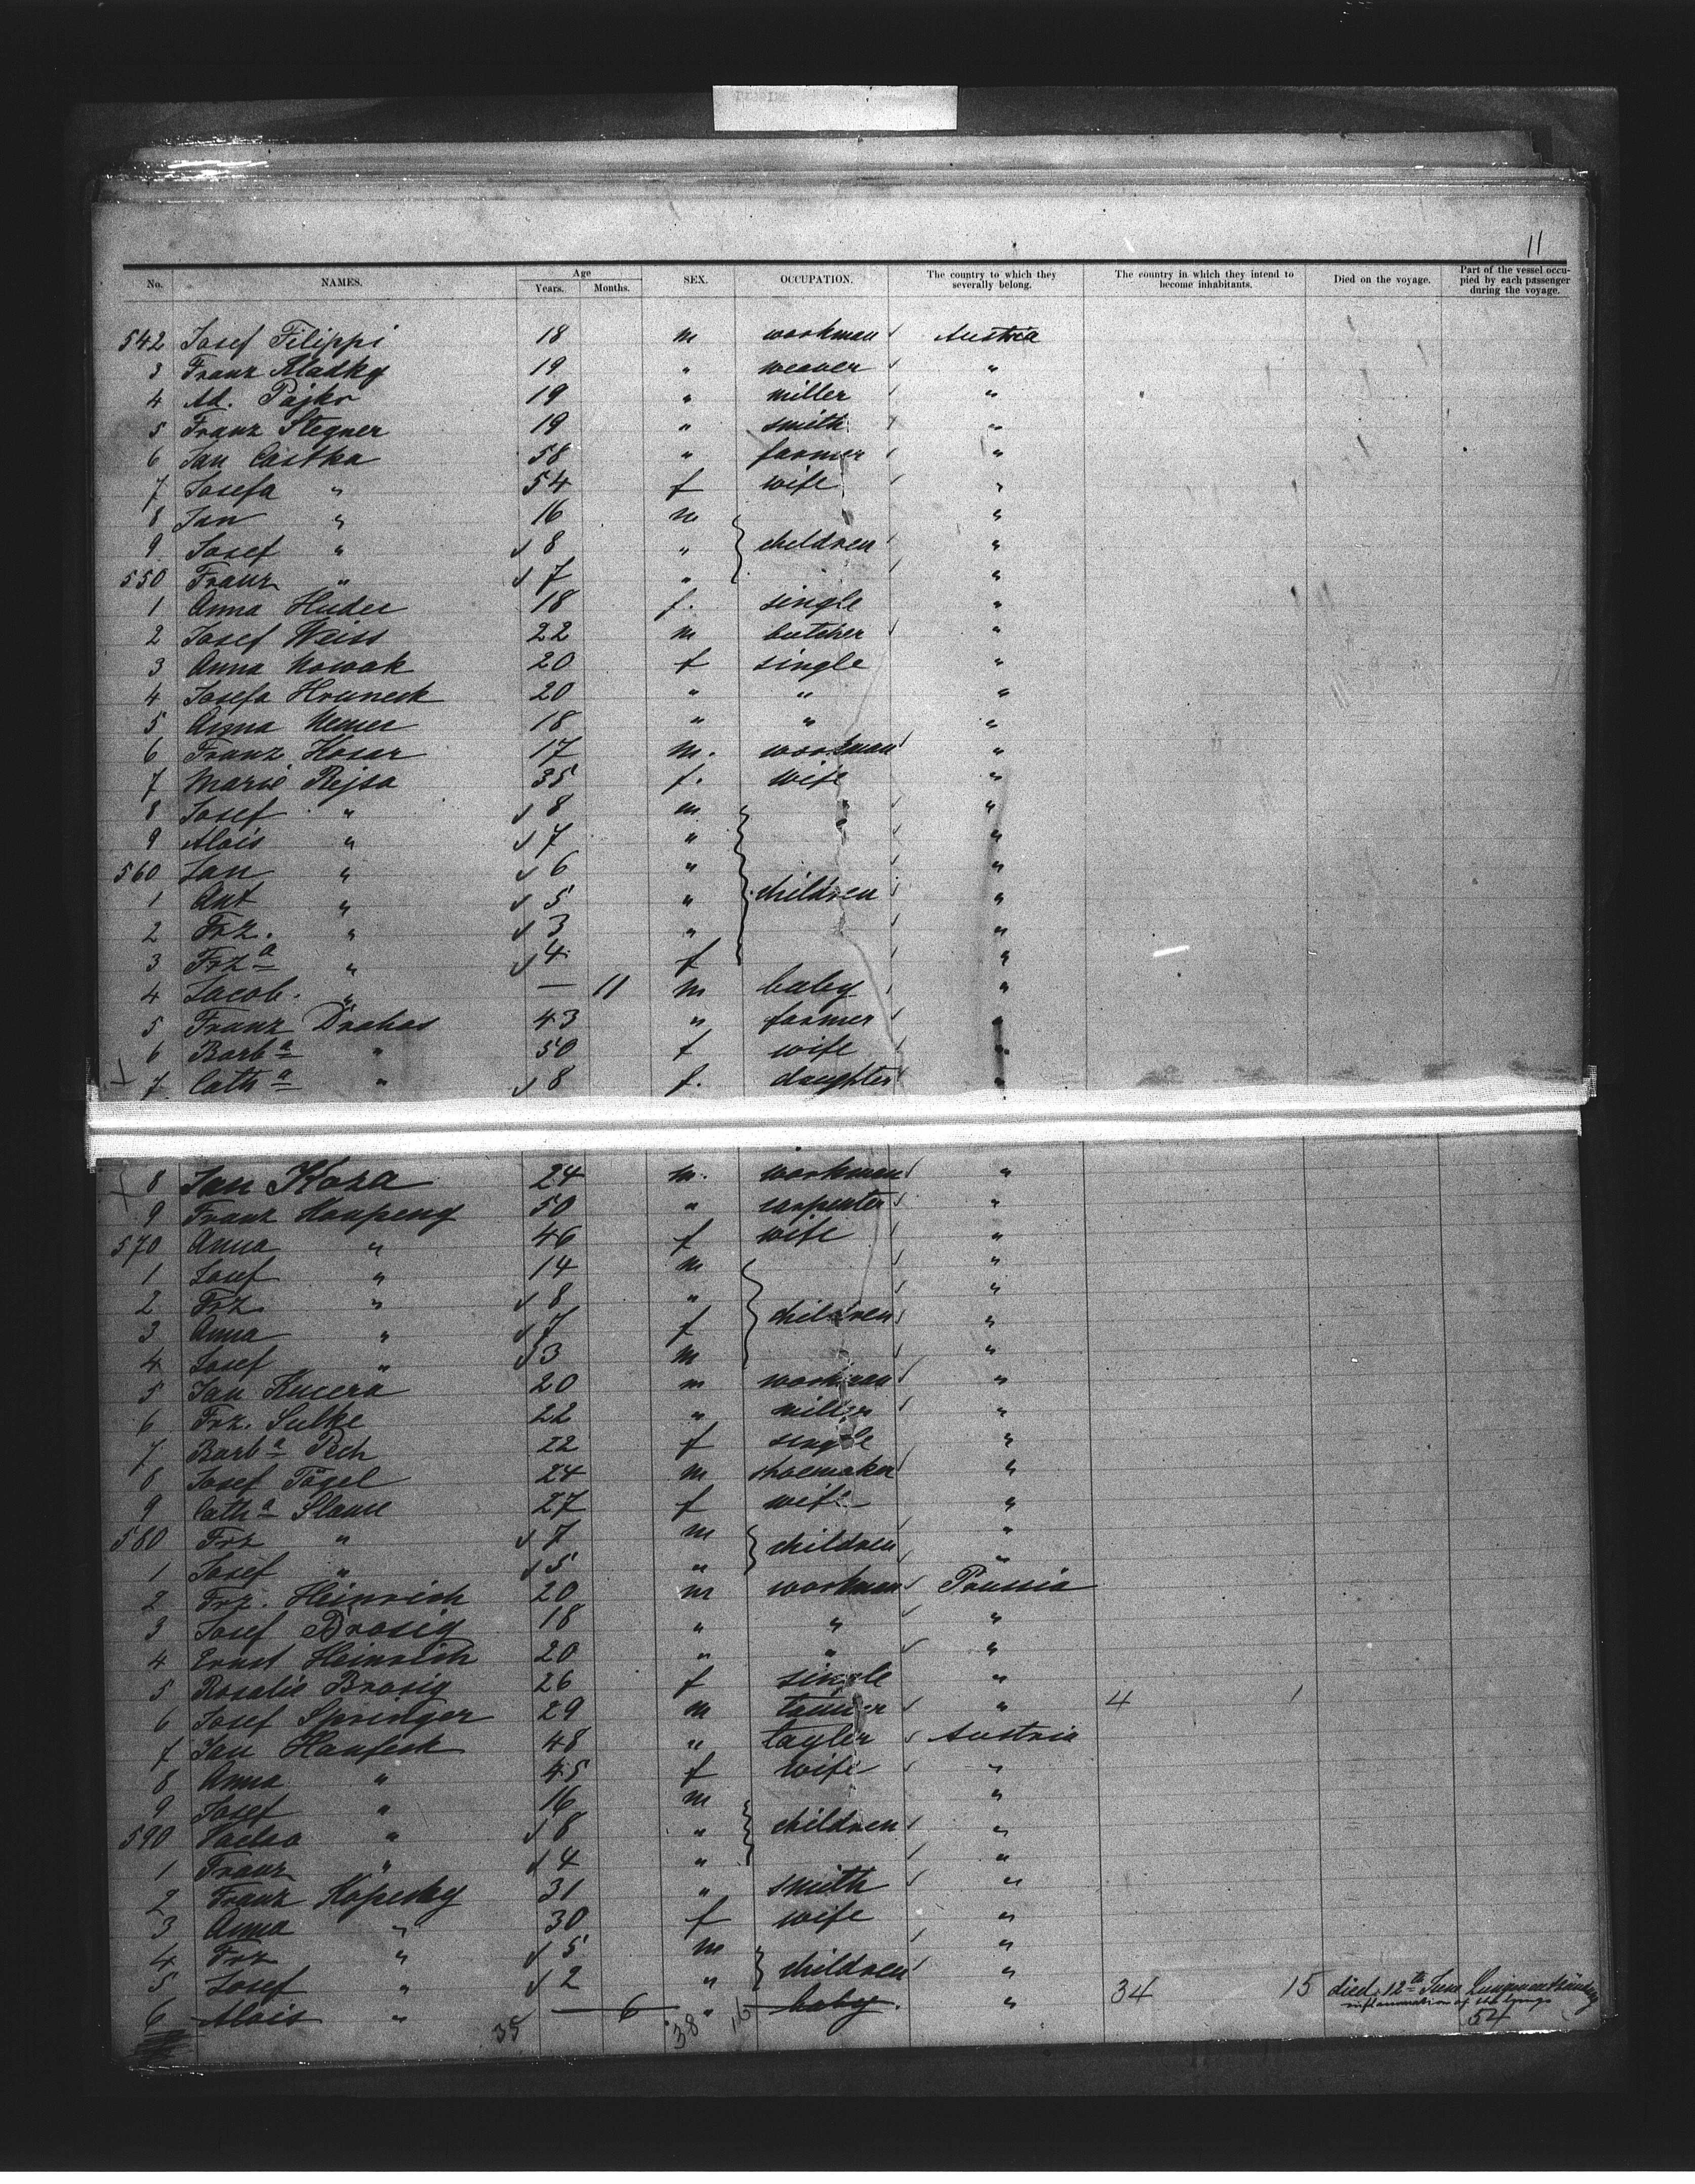 11
No. NAMES. Age Years. Months. SEX. OCCUPATION. The country to which they severally belong. The country in which they intend to become inhabitants. Died on the voyage. Part of the vessel occupied by each passenger during the voyage.
542 Josef Filippi 18 m workman Austria
3 Franz Kladky 19 " weaver "
4 Ad. Pajkr 19 " miller "
5 Franz Stegner 19 " smith "
6 Jan Castka 58 " farmer "
7 Josefa " 54 f wife "
8 Jan " 16 m "
9 Josef " 8 " children "
550 Franz " 7 " "
1 Anna Hudec 18 f. single "
2 Josef Weiss 22 m butcher "
3 Anna Nowak 20 f single "
4 Josefa Hruneck 20 " " "
5 Anna Nemer 18 " " "
6 Franz Kosar 17 m. workman "
7 Marie Rejsa 35 f. wife "
8 Josef " 8 m "
9 Alois " 7 " "
560 Jan " 6 " "
1 Ant " 5 " children "
2 Frz. " 3 " "
3 Frz a " 4 f "
4 Jacob. " — 11 m baby "
5 Franz Drahos 43 " farmer "
6 Barb a " 50 f wife "
7 Cath a " 8 f. daughter "
8 Jan Koza 24 m. workman "
9 Franz Houpeny 50 " carpenter "
570 Anna " 46 f wife "
1 Josef " 14 m "
2 Frz. " 8 " "
3 Anna " 7 f children "
4 Josef " 3 m "
5 Jan Kucera 20 m workman "
6 Frz. Sulke 22 " miller "
7 Barb a Pech 22 f single "
8 Josef Tögel 24 m shoemaker "
9 Cath a Slame 27 f wife "
580 Frz " 7 m "
1 Josef " 5 " children "
2 Frz. Heinrich 20 m workman Prussia
3 Josef Brosig 18 " " "
4 Ernst Heinrich 20 " " "
5 Rosalie Brosig 26 f single "
6 Josef Springer 29 m tanner " 4 1
7 Jan Haufeck 48 " tayler Austria
8 Anna " 45 f wife "
9 Josef " 16 m "
590 " 8 " children "
1 Franz " 4 " "
2 Franz Kopecky 31 " smith "
3 Anna " 30 f wife "
4 Frz " 5 m "
5 Josef " 2 " children " 34 15 died 12th June
inflammation of the lungs
6 Alois " — 6 " baby. " 54
35 38 16